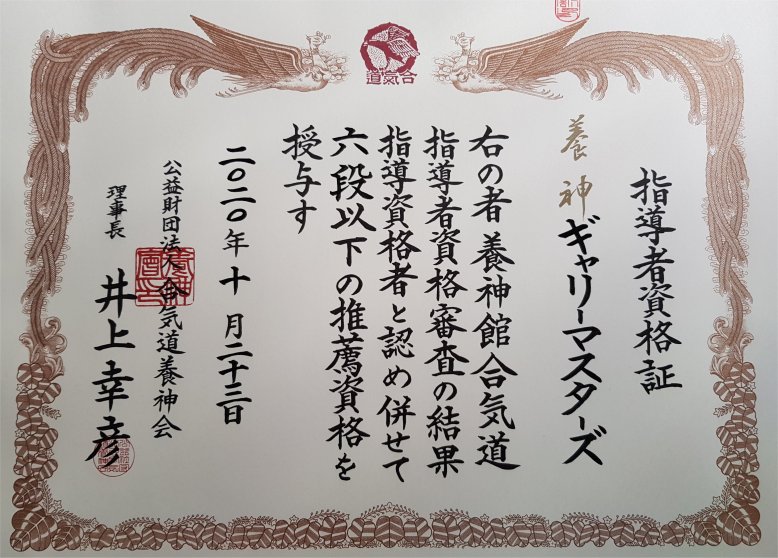 合気道
指導者資格証
養神
ギャリーマスターズ
右の者養神館合気道
指導者資格審査の結果
指導資格者と認め併せて
六段以下の推薦資格を
授与す
二〇二〇年十月二十三日
公益財団法人合気道養神会
理事長
井上幸彦